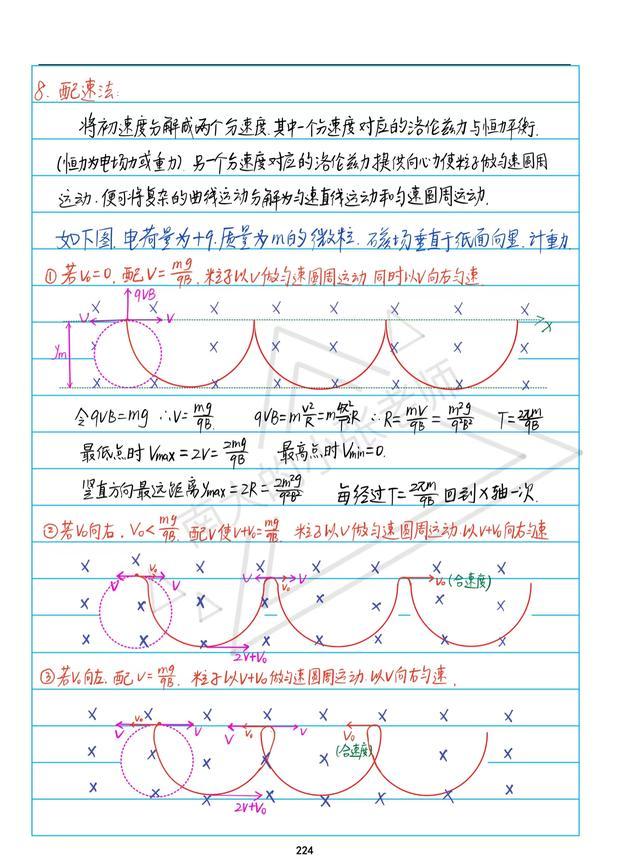 8. 配速法:
将初速度分解成两个分速度.其中一个分速度对应的洛伦兹力与恒力平衡.
(恒力为电场力或重力).另一个分速度对应的洛伦兹力提供向心力使粒子做匀速圆周
运动.便可将复杂的曲线运动分解为匀速直线运动和匀速圆周运动.
如下图.电荷量为+q.质量为m的微粒.磁场垂直于纸面向里.计重力
①若V₀=0.配V=mg/qB.粒子以V做匀速圆周运动 同时以V向右匀速.
qVB
V V
x
ym
令qVB=mg ∴V=mg/qB. qVB=mV²/R=m4π²/T²R ∴R=mV/qB=m²g/q²B² T=2πm/qB
最低点时Vmax=2V=2mg/qB 最高点时Vmin=0.
竖直方向最远距离ymax=2R=2m²g/q²B² 每经过T=2πm/qB回到X轴一次.
②若V₀向右.V₀<mg/qB.配V使V+V₀=mg/qB. 粒子以V做匀速圆周运动.以V+V₀向右匀速
V V₀ V V₀ V₀(合速度)
2V+V₀
③若V₀向左.配V=mg/qB. 粒子以V+V₀做匀速圆周运动.以V向右匀速.
V V₀ V V V₀ V V₀
(合速度)
2V+V₀
南大的小张老师
224